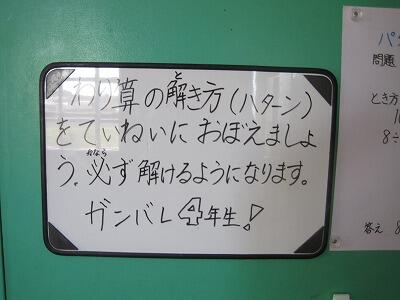 わり算の解き方(パターン)
をていねいにおぼえましょ
う。必ず解けるようになります。
ガンバレ4年生!
問題
とき方
8÷
答え 8